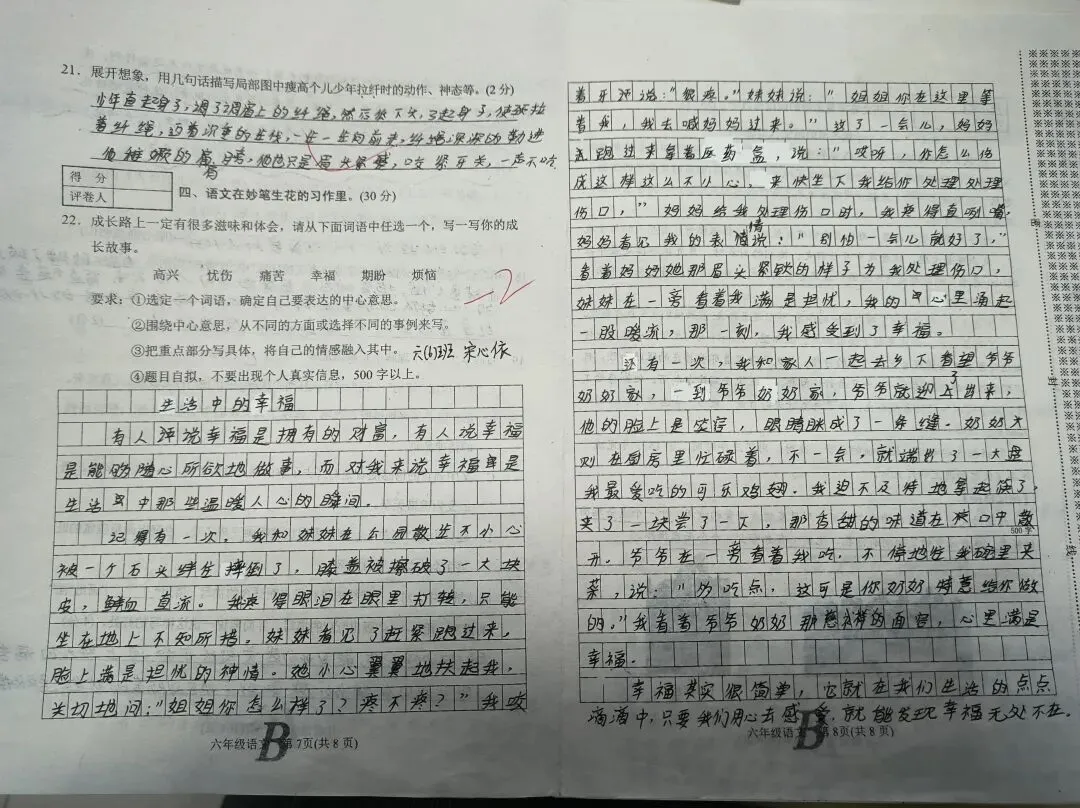 21．展开想象，用几句话描写局部图中瘦高个儿少年拉纤时的动作、神态等。(2 分)
少年直起身子，调了调肩上的纤绳，然后
着纤绳，迈着沉重的步伐，一步一步向前走，纤绳深深的勒进
他稚嫩的肩，可他只是眉头紧，咬紧牙关，一声不吭
得 分
评卷人
四、语文在妙笔生花的习作里。(30 分)
22．成长路上一定有很多滋味和体会，请从下面词语中任选一个，写一写你的成
长故事。
高兴 忧伤 痛苦 幸福 期盼 烦恼
-2
要求：①选定一个词语，确定自己要表达的中心意思。
②围绕中心意思，从不同的方面或选择不同的事例来写。
③把重点部分写具体，将自己的情感融入其中。 六(6)班 宋心依
④题目自拟，不要出现个人真实信息，500 字以上。
生活中的幸福
有人说幸福是拥有的财富，有人说幸福
是能够随心所欲地做事，而对我来说幸福是
生活中那些温暖人心的瞬间。
记得有一次，我和妹妹在公园散步不小心
被一个石头绊住摔倒了，膝盖被擦破了一大块
皮，鲜血直流。我疼得眼泪在眼里打转，只能
坐在地上不知所措。妹妹看见了赶紧跑过来，
脸上满是担忧的神情。她小心翼翼地扶起我，
关切地问："姐姐你怎么样了？疼不疼？"我咬
着牙说："很疼。"妹妹说："姐姐你在这里等
着我，我去喊妈妈过来。"过了一会儿，妈妈
跑过来拿着医药盒，说："哎呀，你怎么伤
成这样这么不小心，来快坐下我给你处理处理
伤口，"妈妈给我处理伤口时，我疼得直叫，
妈妈看见我的表情说："别怕一会儿就好了，"
看着妈妈她那眉头紧锁的样子为我处理伤口，
妹妹在一旁看着我满是担忧，我的心里涌起
一股暖流，那一刻，我感受到了幸福。
还有一次，我和家人一起去乡下看望爷爷
奶奶家，一到爷爷奶奶家，爷爷就迎了出来，
他的脸上是笑容，眼睛眯成了一条缝。奶奶
则在厨房里忙碌着，不一会，就端出了一大盘
我最爱吃的可乐鸡翅。我迫不及待地拿起筷子，
夹了一块尝了一下，那香甜的味道在口中散
500 字
开。爷爷在一旁看着我吃，不停地往我碗里夹
菜，说："多吃点，这可是你奶奶特意给你做
的。"我看着爷爷奶奶那慈祥的面容，心里满是
幸福。
幸福其实很简单，它就在我们生活的点点
滴滴中，只要我们用心去感受，就能发现幸福无处不在。
六年级语文B 第 7页(共 8 页)
六年级语文B 第 8页(共 8 页)
雨
封
线